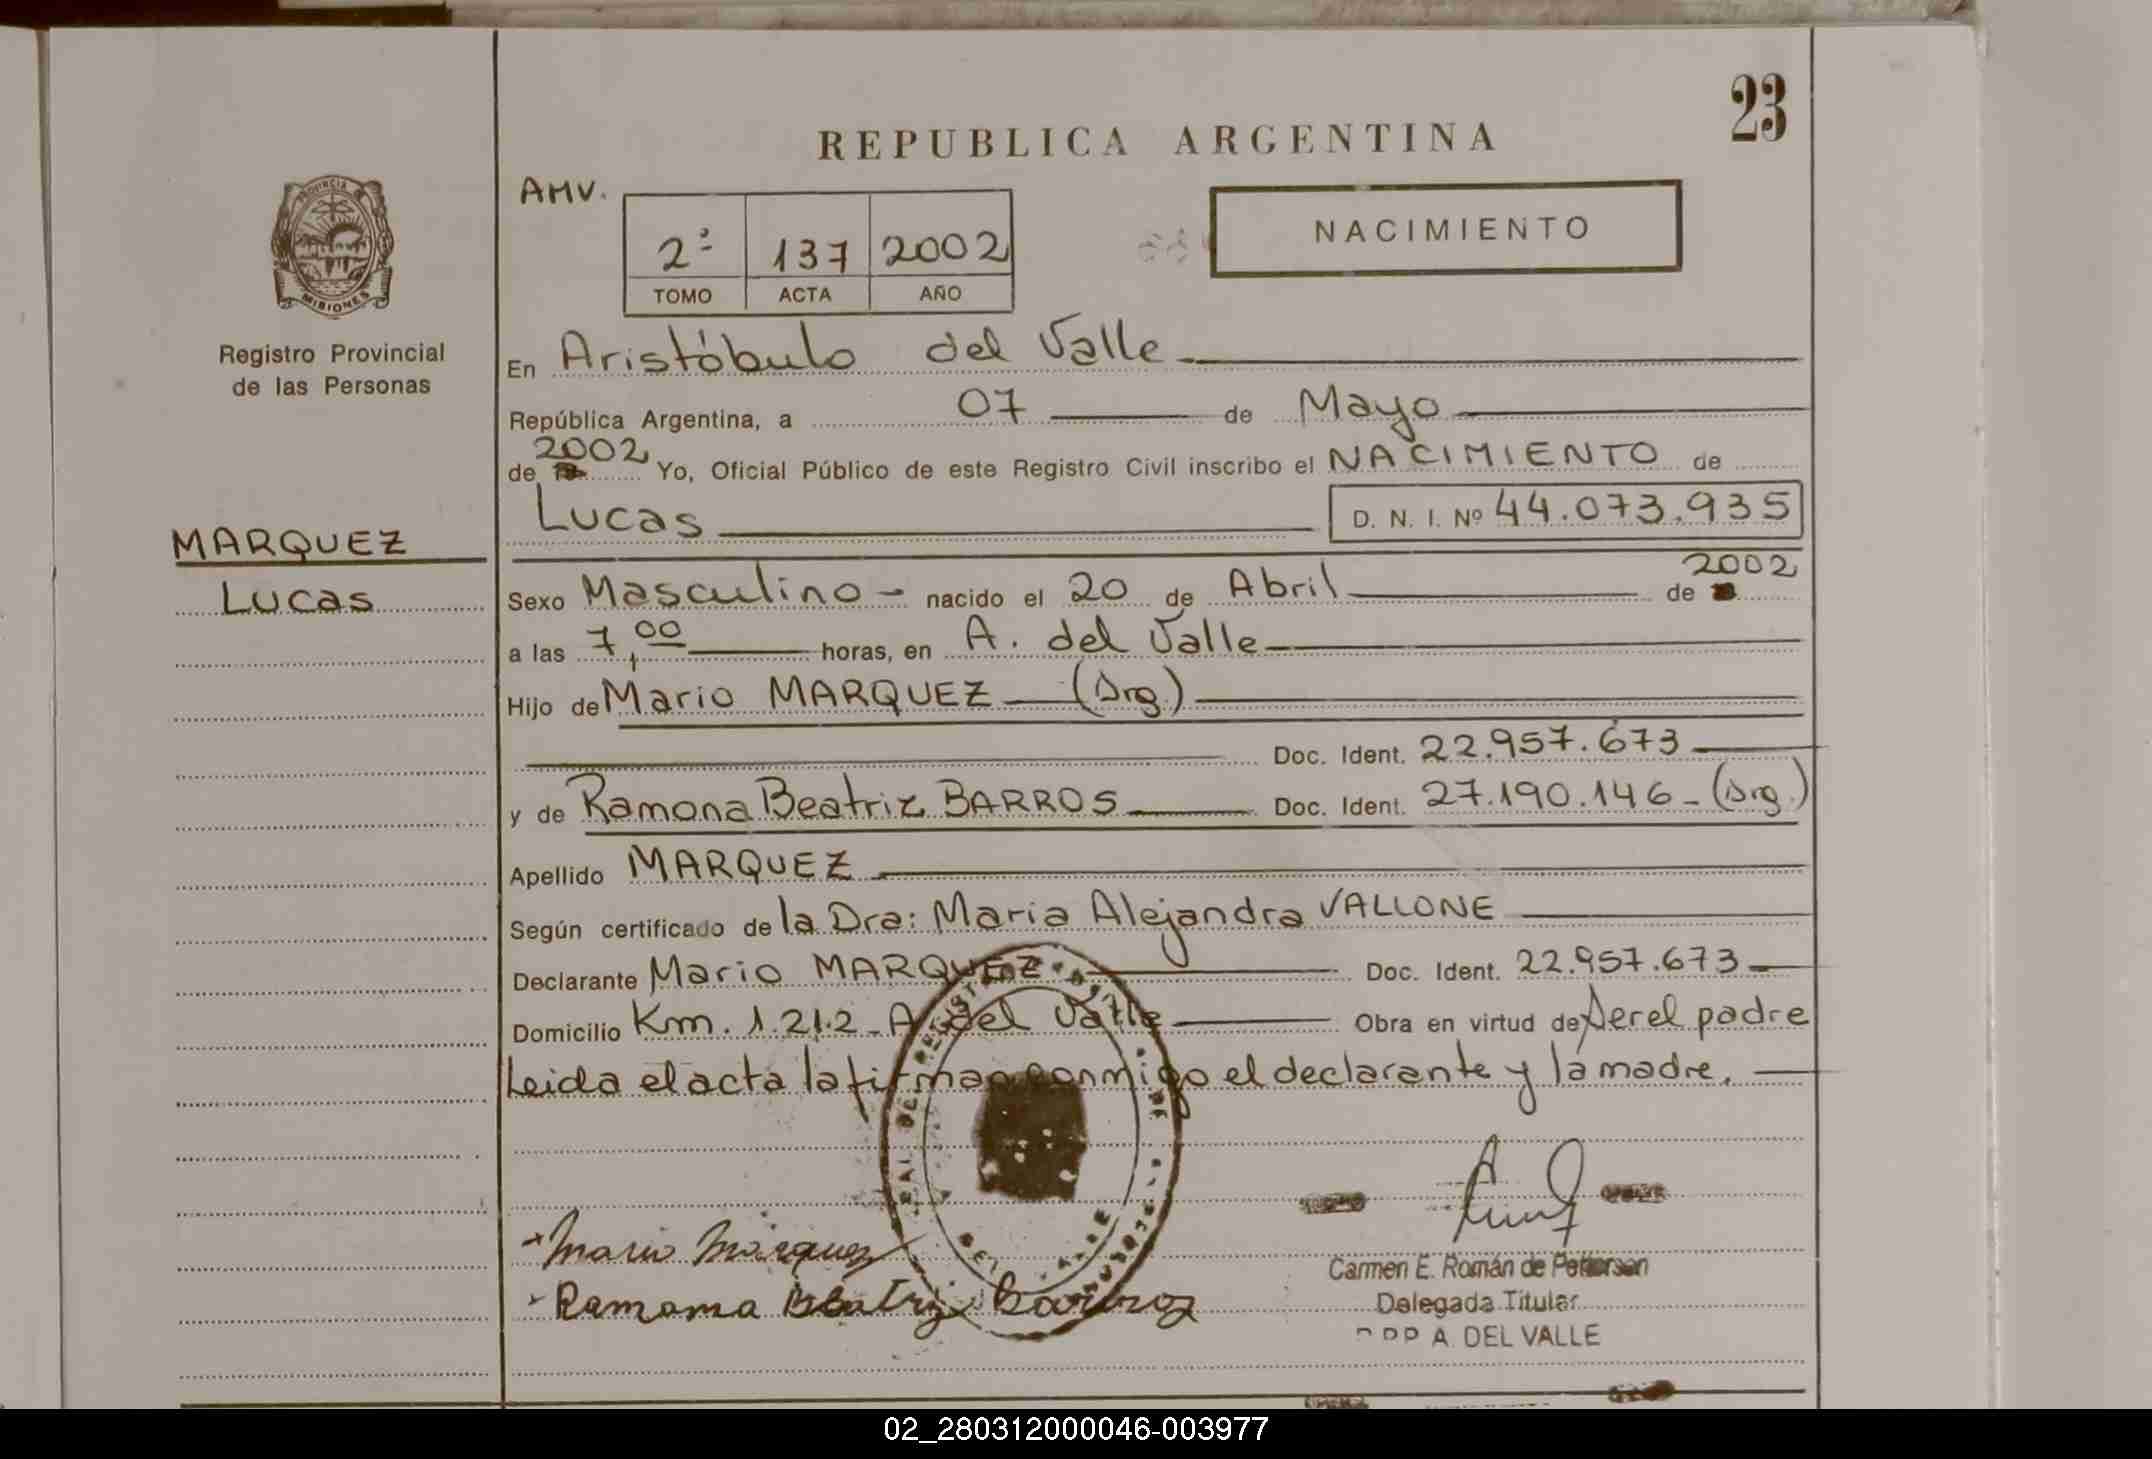 23
REPUBLICA ARGENTINA
AMV.
2º 137 2002
TOMO ACTA AÑO
NACIMIENTO
PROVINCIA
MISIONES
Registro Provincial
de las Personas
MARQUEZ
Lucas
En Aristóbulo del Valle
República Argentina, a 07 de Mayo
de 2002 Yo, Oficial Público de este Registro Civil inscribo el NACIMIENTO de
Lucas D. N. I. Nº 44.073.935
Sexo Masculino - nacido el 20 de Abril de 2002
a las 7,00 horas, en A. del Valle
Hijo de Mario MARQUEZ (Arg.)
Doc. Ident. 22.957.673
y de Ramona Beatriz BARROS Doc. Ident. 27.190.146 - (Arg.)
Apellido MARQUEZ
Según certificado de la Dra: Maria Alejandra VALLONE
Declarante Mario MARQUEZ Doc. Ident. 22.957.673
Domicilio Km. 1.212 - A. del Valle Obra en virtud de Ser el padre
Leida el acta la firman conmigo el declarante y la madre.
Mario Marquez
Ramona Beatriz Barros
Carmen E. Román de Pettersen
Delegada Titular
A. DEL VALLE
02_280312000046-003977